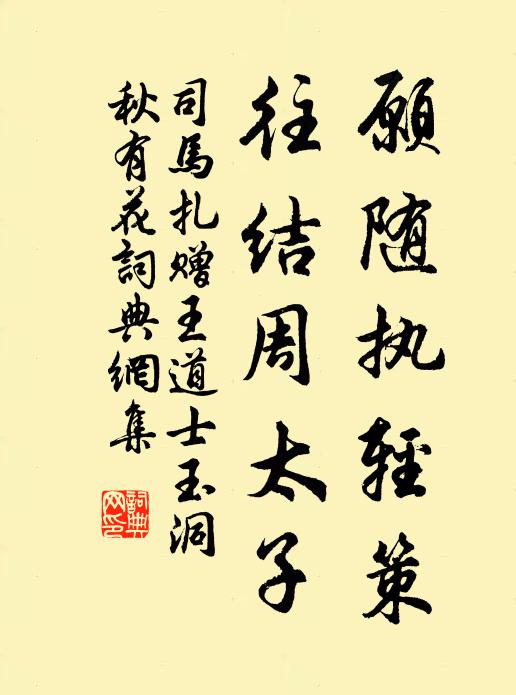 願随执輕策
往结周太子
司馬扎赠王道士玉洞
秋有花詞典網集
詞典网印